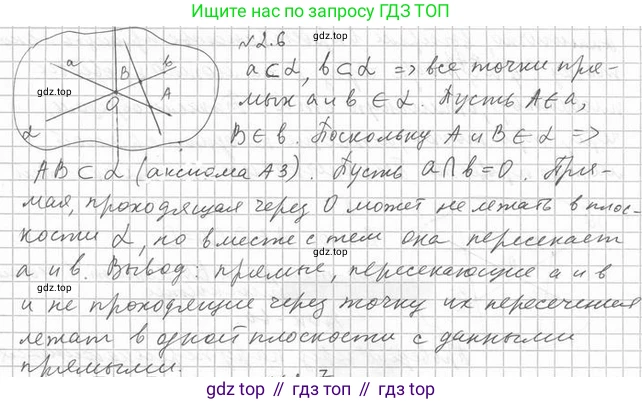 Ищите нас по запросу ГДЗ ТОП
№2.6
a ⊂ α, b ⊂ α => все точки пря-
мых a и b ∈ α. Пусть A ∈ a,
B ∈ b. Поскольку A и B ∈ α =>
AB ⊂ α (аксиома A3). Пусть a ∩ b = O. Пря-
мая, проходящая через O может не лежать в плос-
кости α, но вместе с тем она пересекает
a и b. Вывод: прямые, пересекающие a и b
и не проходящие через точку их пересечения
лежат в одной плоскости с данными
прямыми.
a
B
b
gdz.top
A
O
α
gdz.top
gdz.top
gdz.top
gdz.top
gdz top // гдз топ // gdz.top